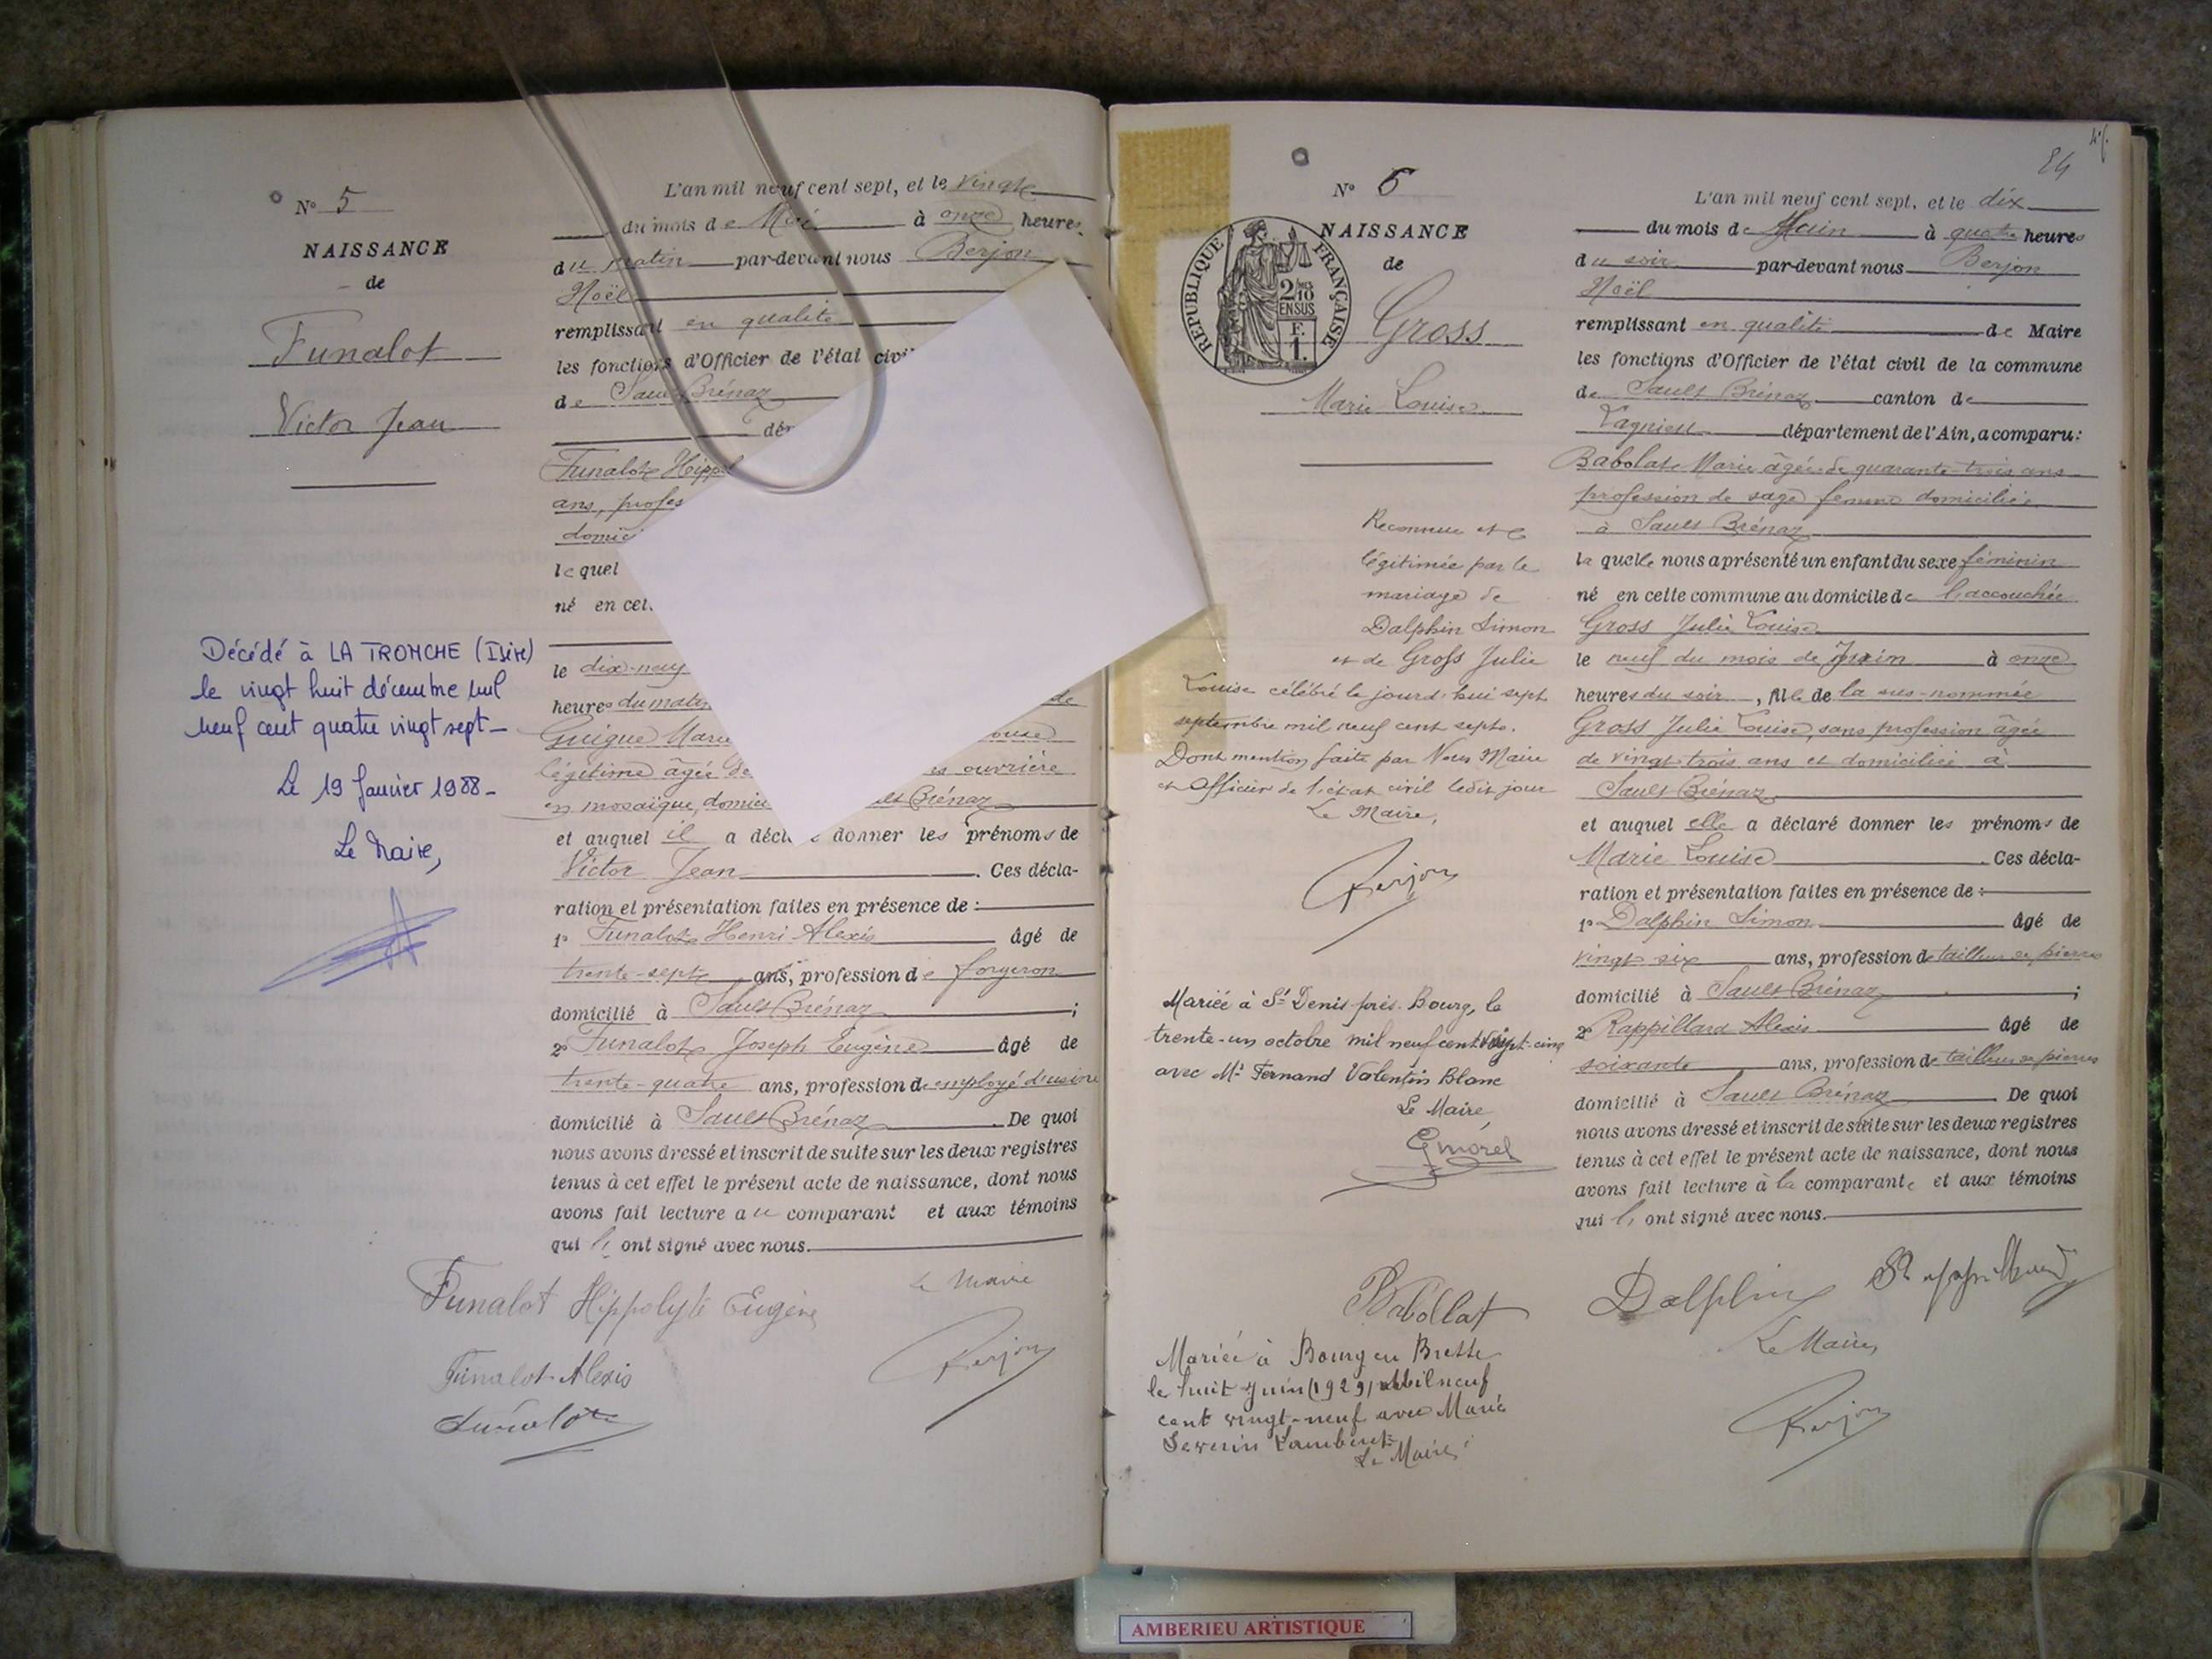 N° 5
NAISSANCE
de
Funalot
Victor Jean
Décédé à LA TRONCHE (Isère)
le vingt huit décembre mil
neuf cent quatre vingt sept
Le 19 Janvier 1988
Le Maire,
L'an mil neuf cent sept, et le vingt
du mois de Mai à onze heures
du matin par-devant nous Berjon
Noël
remplissant en qualité
les fonctions d'Officier de l'état civil
de Sault Brénaz
Funalot
ans,
le quel
né en cet
le dix-neuf
heures du matin
Guigue Marie
légitime âgée de ouvrière
en mosaïque, Brénaz
et auquel il a donner les prénoms de
Victor Jean. Ces décla-
ration et présentation faites en présence de :
1° Funalot Henri Alexis âgé de
trente-sept ans, profession de forgeron
domicilié à Sault Brénaz ;
2° Funalot Joseph Eugène âgé de
trente-quatre ans, profession de employé d'usine
domicilié à Sault Brénaz. De quoi
nous avons dressé et inscrit de suite sur les deux registres
tenus à cet effet le présent acte de naissance, dont nous
avons fait lecture au comparant et aux témoins
qui l' ont signé avec nous.
Funalot Hippolyte Eugène
Le Maire
Funalot Alexis
Berjon
Funalot
24
N° 6
RÉPUBLIQUE FRANÇAISE
2/10
EN SUS
F.
1.
NAISSANCE
de
Gross
Marie Louise
Reconnue et
légitimée par le
mariage de
Dalphin Simon
et de Gross Julie
Louise célébré le jourd'hui sept
septembre mil neuf cent sept.
Dont mention faite par Nous Maire
et Officier de l'état civil ledit jour
Le Maire,
Berjon
Mariée à St Denis près Bourg, le
trente-un octobre mil neuf cent vingt-cinq
avec Mr Fernand Valentin Blanc
Le Maire,
Gmorel
L'an mil neuf cent sept, et le dix
du mois de Juin à quatre heures
du soir par-devant nous Berjon
Noël
remplissant en qualité de Maire
les fonctions d'Officier de l'état civil de la commune
de Sault Brénaz canton de
Lagnieu département de l'Ain, a comparu :
Babolat Marie âgée de quarante-trois ans
profession de sage femme domiciliée
à Sault Brénaz
la quelle nous a présenté un enfant du sexe féminin
né en cette commune au domicile de l'accouchée
Gross Julie Louise
le neuf du mois de Juin à onze
heures du soir, fille de la sus-nommée
Gross Julie Louise, sans profession âgée
de vingt trois ans et domiciliée à
Sault Brénaz
et auquel elle a déclaré donner les prénoms de
Marie Louise. Ces décla-
ration et présentation faites en présence de :
1° Dalphin Simon âgé de
vingt six ans, profession de tailleur de pierres
domicilié à Sault Brénaz ;
2° Rappillard Alexis âgé de
soixante ans, profession de tailleur de pierres
domicilié à Sault Brénaz. De quoi
nous avons dressé et inscrit de suite sur les deux registres
tenus à cet effet le présent acte de naissance, dont nous
avons fait lecture à la comparante et aux témoins
qui l' ont signé avec nous.
Babollat
Dalphin
Rappillard
Le Maire,
Berjon
Mariée à Bourg en Bresse
le huit Juin (1929) Mil neuf
cent vingt-neuf avec Marie
Severin
Le Maire
AMBERIEU ARTISTIQUE